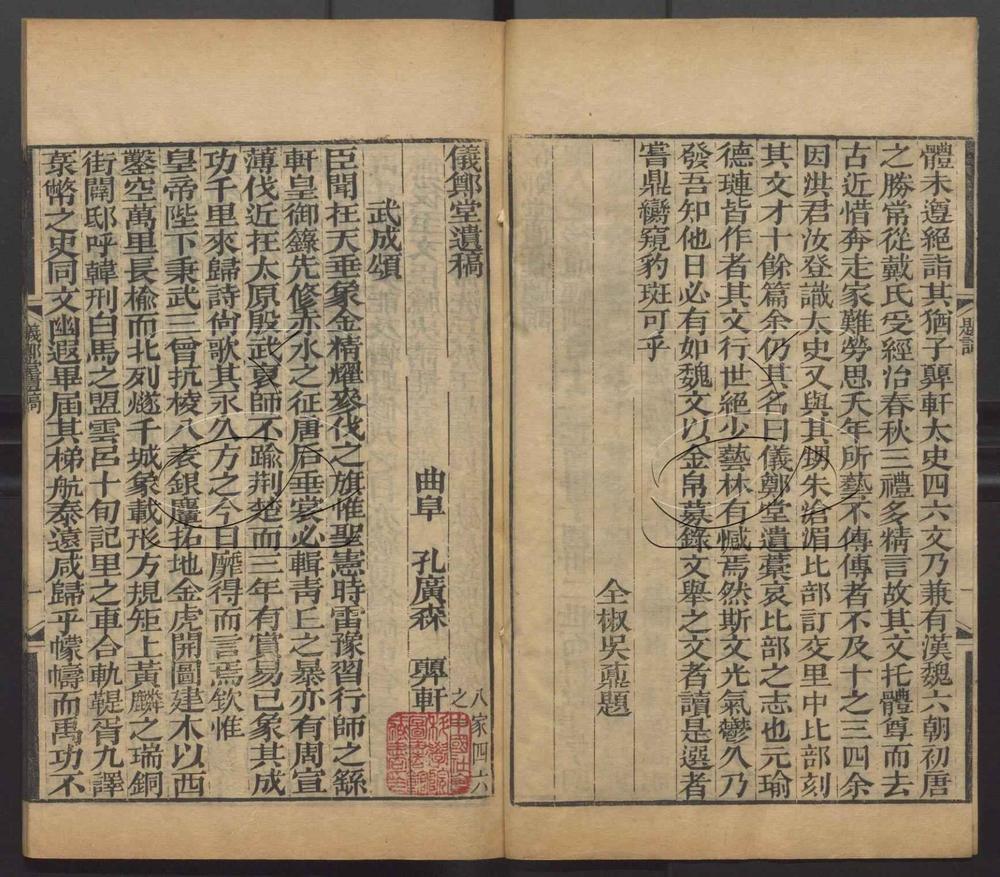 體未遑絕詣其猶子顨軒太史四六文乃兼有漢魏六朝初唐
之勝常從戴氏受經治春秋三禮多精言故其文托體尊而去
古近惜奔走家難勞思夭年所藝不傳傳者不及十之三四余
因洪君汝登識太史又與其甥朱滄湄比部訂交里中比部刻
其文才十餘篇余仍其名曰儀鄭堂遺藁哀比部之志也元瑜
德璉皆作者其文行世絕少藝林有憾焉然斯文光氣鬱久乃
發吾知他日必有如魏文以金帛募錄文舉之文者讀是選者
嘗鼎臠窺豹斑可乎
全椒吳鼒題
題詞
儀鄭堂遺稿
八家四六之一
曲阜 孔廣森 顨軒
武成頌
臣聞在天垂象金精耀參伐之旗惟聖憲時雷豫習行師之繇
軒皇御籙先修赤水之征唐后垂裳必輯靑丘之暴亦有周宣
薄伐近在太原殷武裒師不踰荆楚而三年有賞易已象其成
功千里來歸詩尙歌其永久方之今日靡得而言焉欽惟
皇帝陛下秉武三曾抗棱八表銀鷹拓地金虎開圖建木以西
鑿空萬里長楡而北列燧千城象載形方規矩上黃麟之瑞銅
街闢邸呼韓刑白馬之盟雲呂十旬記里之車合軌鞮胥九譯
裦幣之史同文幽遐畢届其梯航泰遠咸歸乎幪幬而禹功不
儀鄭堂遺稿
一